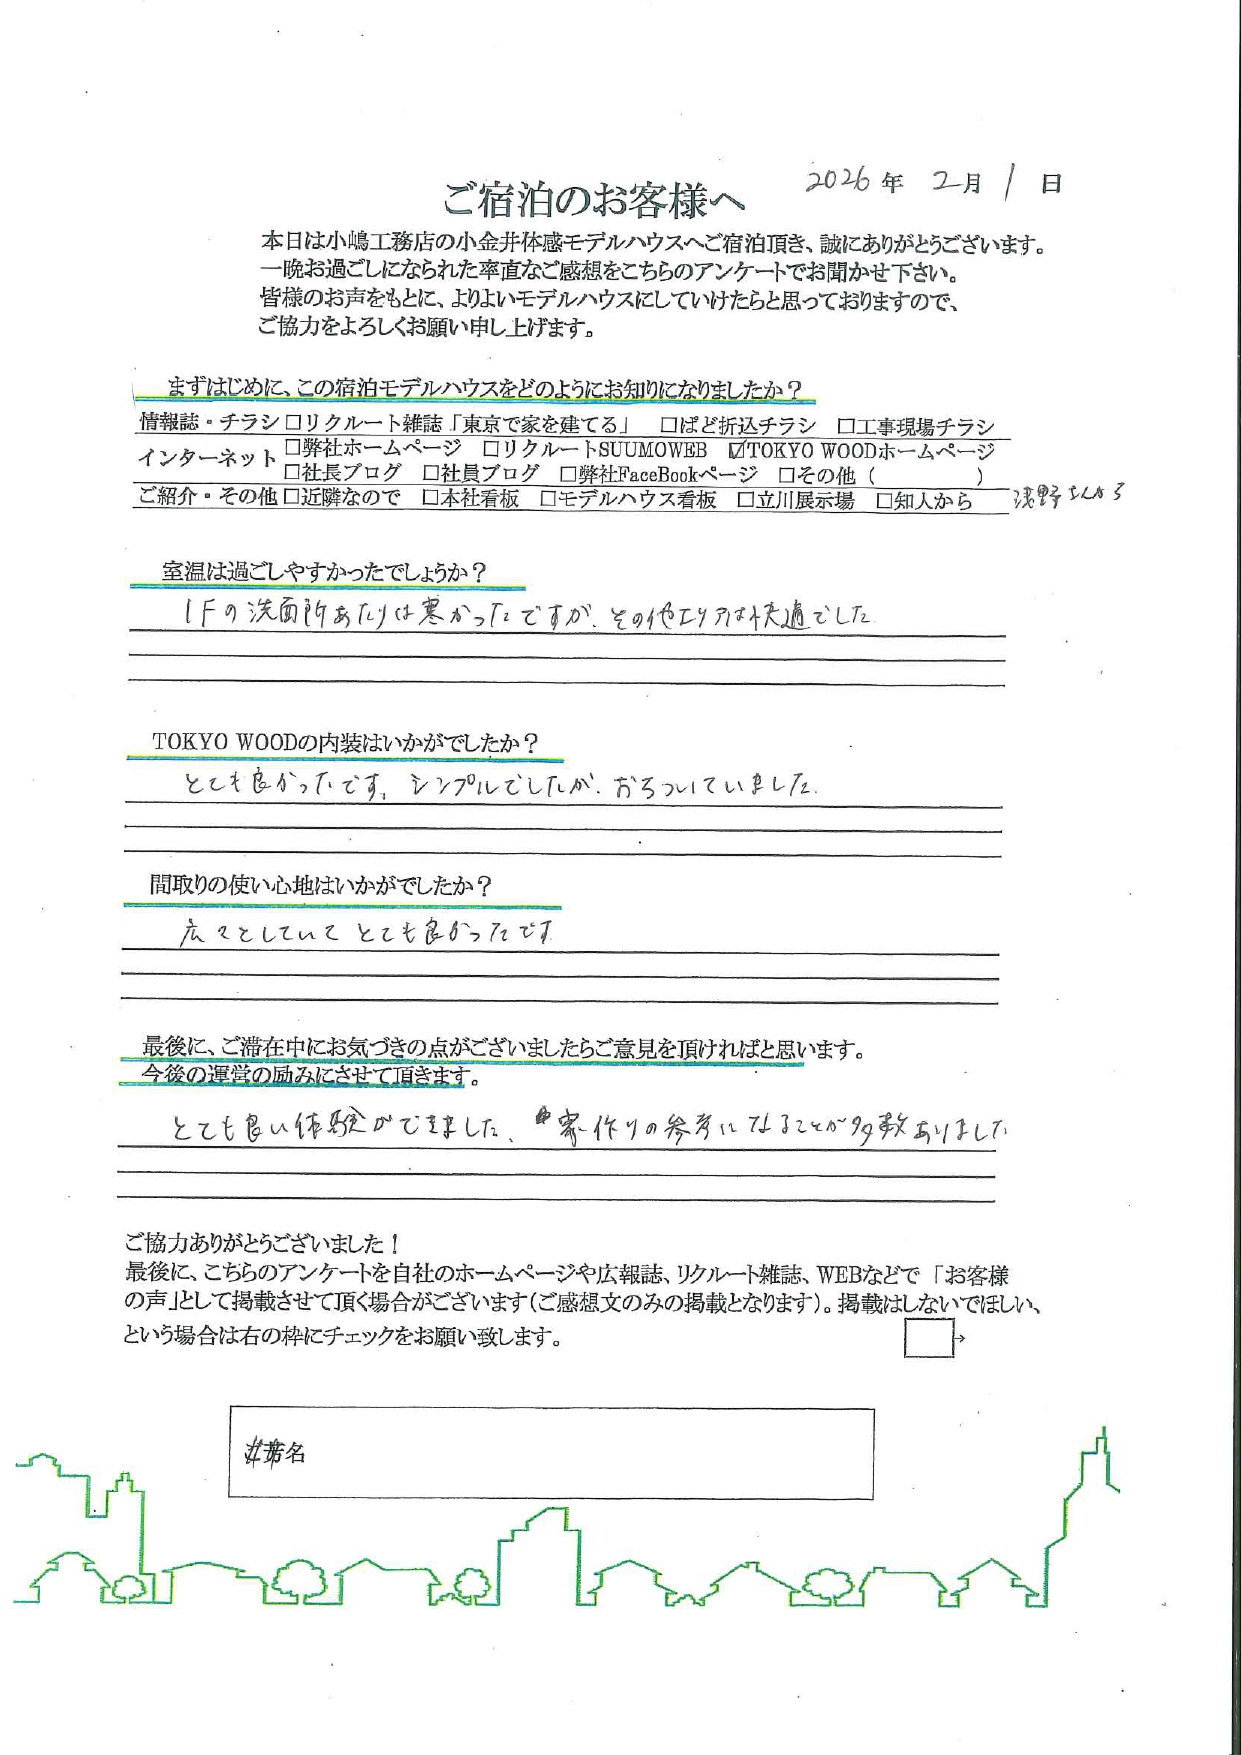 2026年 2月 1日
ご宿泊のお客様へ
本日は小嶋工務店の小金井体感モデルハウスへご宿泊頂き、誠にありがとうございます。
一晩お過ごしになられた率直なご感想をこちらのアンケートでお聞かせ下さい。
皆様のお声をもとに、よりよいモデルハウスにしていけたらと思っておりますので、
ご協力をよろしくお願い申し上げます。
まずはじめに、この宿泊モデルハウスをどのようにお知りになりましたか？
情報誌・チラシ □リクルート雑誌「東京で家を建てる」 □ぱど折込チラシ □工事現場チラシ
インターネット □弊社ホームページ □リクルートSUUMOWEB ☑TOKYO WOODホームページ
□社長ブログ □社員ブログ □弊社FaceBookページ □その他（ ）
ご紹介・その他 □近隣なので □本社看板 □モデルハウス看板 □立川展示場 □知人から 浅野さんから
室温は過ごしやすかったでしょうか？
1Fの洗面所あたりは寒かったですが、その他エリアは快適でした
TOKYO WOODの内装はいかがでしたか？
とても良かったです。シンプルでしたが、おちついていました。
間取りの使い心地はいかがでしたか？
広々としていて とても良かったです
最後に、ご滞在中にお気づきの点がございましたらご意見を頂ければと思います。
今後の運営の励みにさせて頂きます。
とても良い体験ができました、家作りの参考になることが多数ありました
ご協力ありがとうございました！
最後に、こちらのアンケートを自社のホームページや広報誌、リクルート雑誌、WEBなどで「お客様
の声」として掲載させて頂く場合がございます（ご感想文のみの掲載となります）。掲載はしないでほしい、
という場合は右の枠にチェックをお願い致します。 □→
名